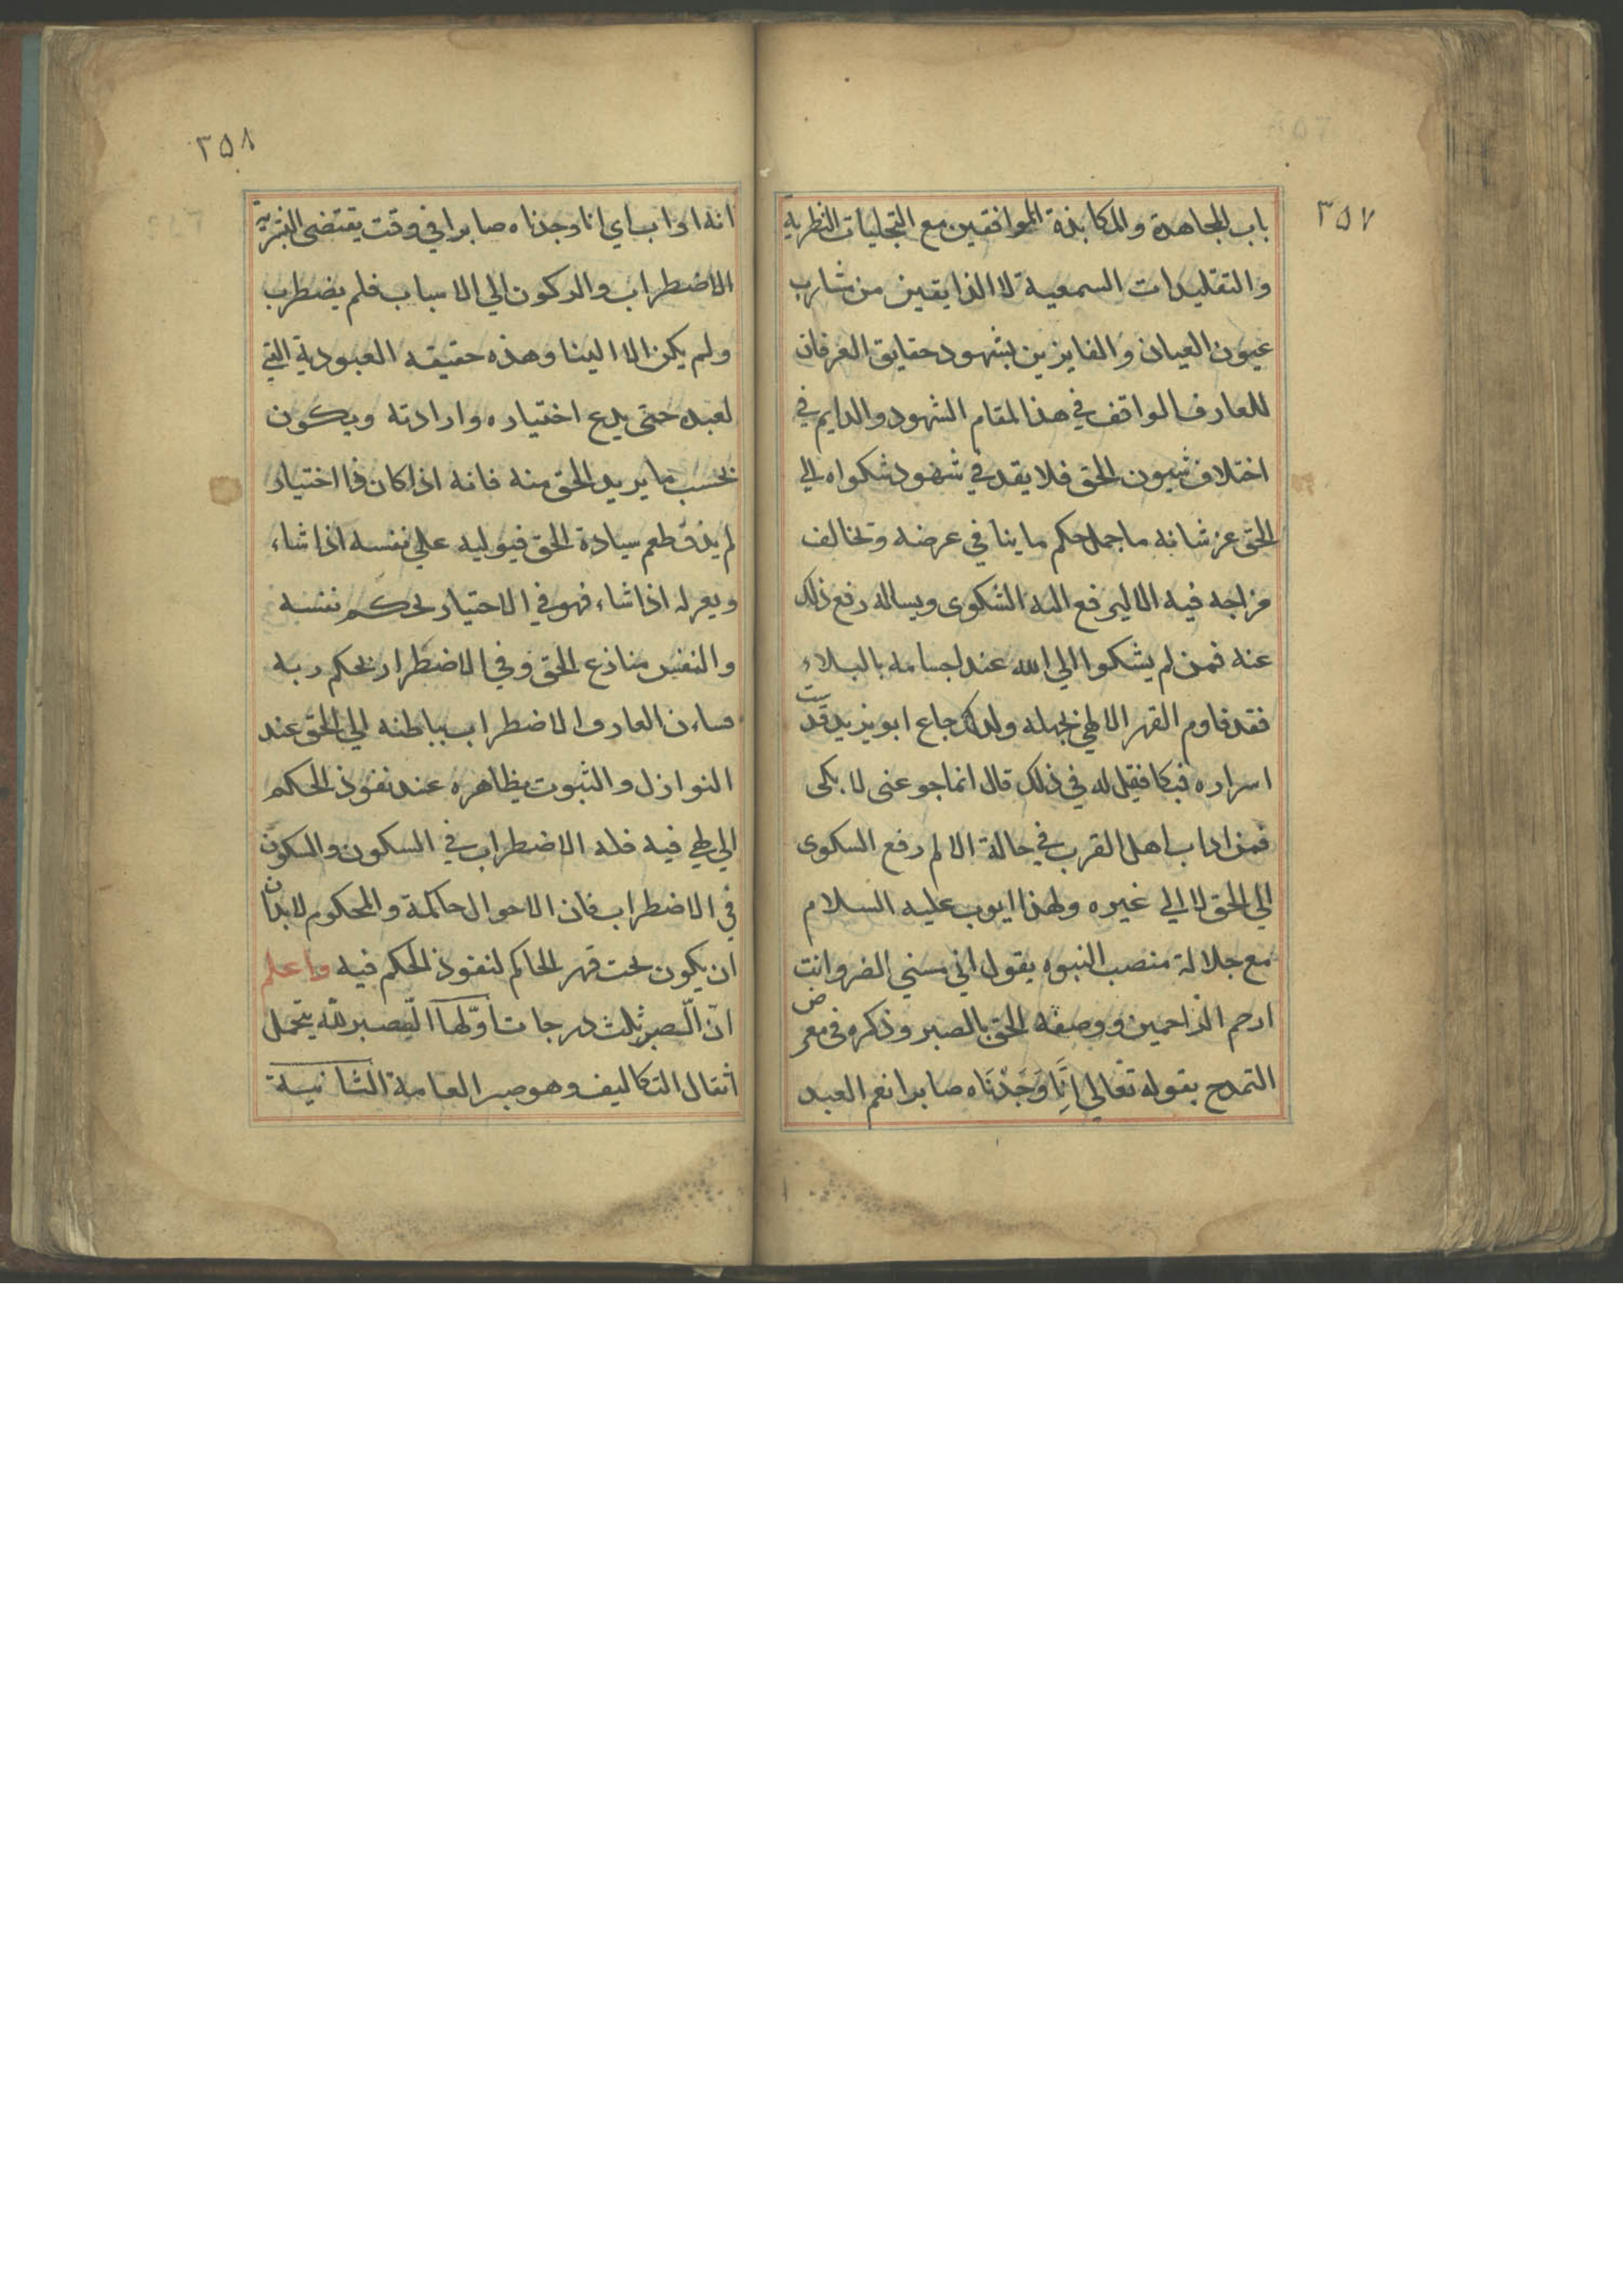 ٣٥٧
باب المجاهدة والمكابذة الموافقين مع التجليات النظرية
والتقليدات السمعية لا الذايقين من مشارب
عيون العيان والفايزين بشهود حقايق العرفان
للعارف الواقف في هذا المقام الشهود والدايم في
اختلاف شيون الحق فلا يقدح في شهود شكواه الي
الحق عز شانه ما جمل حكم ما ينافي عرضه وتخالف
مزاجه فيه الاليم رفع اليه الشكوى ويساله رفع ذلك
عنه فمن لم يشكوا الي الله عند اجسامه بالبلاء
فقد قاوم القهر الالهي بجهله ولذلك جاع ابو يزيد قدست
اسراره فبكا فقيل له في ذلك قال انما جوعنى لابكى
فمن اداب اهل القرب في حالة الالم رفع السكوى
الي الحق لا الي غيره ولهذا ايوب عليه السلام
مع جلالة منصب النبوه يقول اني مسني الضر وانت
ارحم الراحمين ووصفه الحق بالصبر وذكره في معرض
التمدح بقوله تعالي اِنَّا وَجَدْنَاه صابرا نعم العبد
٣٥٨
انه اواب اي انا وجدناه صابرا في وقت يقتضى البشرية
الاضطراب والركون الي الاسباب فلم يضطرب
ولم يكن الا الينا وهذه حقيقه العبودية التي
لعبده حتى يدع اختياره وارادته ويكون
بحسب ما يريد الحق منه فانه اذا كان ذا اختيار
لم يذق طعم سيادة الحق فيوليه علي نفسه اذا شاء
ويعزله اذا شاء فهو في الاختيار بحكم نفسه
والنفس منازع الحق وفي الاضطرار بحكم ربه
فساءن العارف الاضطراب بباطنه الي الحق عند
النوازل والثبوت بظاهره عند نفوذ الحكم
الالهي فيه فله الاضطراب في السكون والسكون
في الاضطراب فان الاحوال حاكمة والمحكوم لابد ان
ان يكون تحت قهر الحاكم لنفوذ الحكم فيه واعلم
انّ الصبر ثلث درجات اوّلها الصبر للّه يتحمل
اثقال التكاليف وهو صبر العامة الثانية